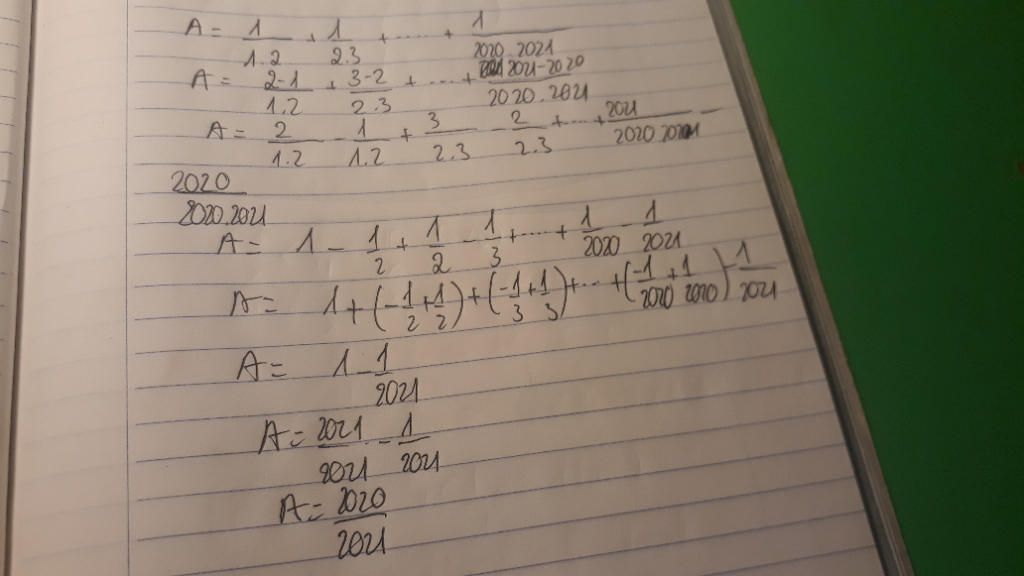 A = 1/1.2 + 1/2.3 + ..... + 1/2020.2021
A = 2-1/1.2 + 3-2/2.3 + ..... + 2021-2020/2020.2021
A = 2/1.2 - 1/1.2 + 3/2.3 - 2/2.3 + .... + 2021/2020.2021 -
2020/2020.2021
A = 1 - 1/2 + 1/2 - 1/3 + ..... + 1/2020 - 1/2021
A = 1 + (-1/2 + 1/2) + (-1/3 + 1/3) + ... + (-1/2020 + 1/2020) - 1/2021
A = 1 - 1/2021
A = 2021/2021 - 1/2021
A = 2020/2021